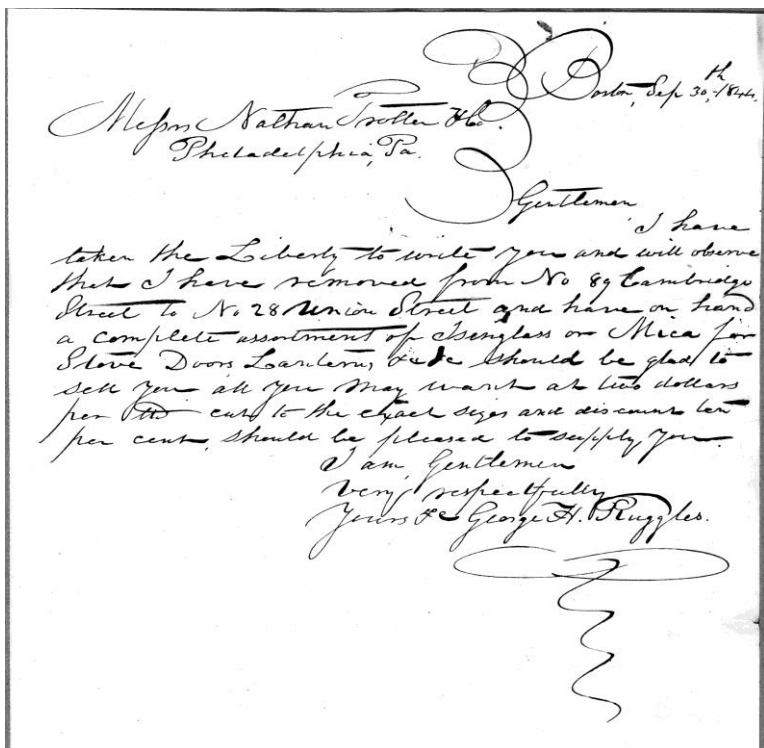 Boston, Sep 30,th 1844.
Messrs Nathan Trotter & Co.
Philadelphia, Pa.
Gentlemen
I have
taken the Liberty to write you and will observe
that I have removed from No 89 Cambridge
Street to No 28 Union Street and have on hand
a complete assortment of Isenglass or Mica for
Stove Doors Lanterns, &c &c should be glad to
sell you all you may want at two dollars
per lb cut to the exact sizes and discount ten
per cent, should be pleased to supply you.
I am, Gentlemen
very respectfully
Yours &c George H. Ruggles.